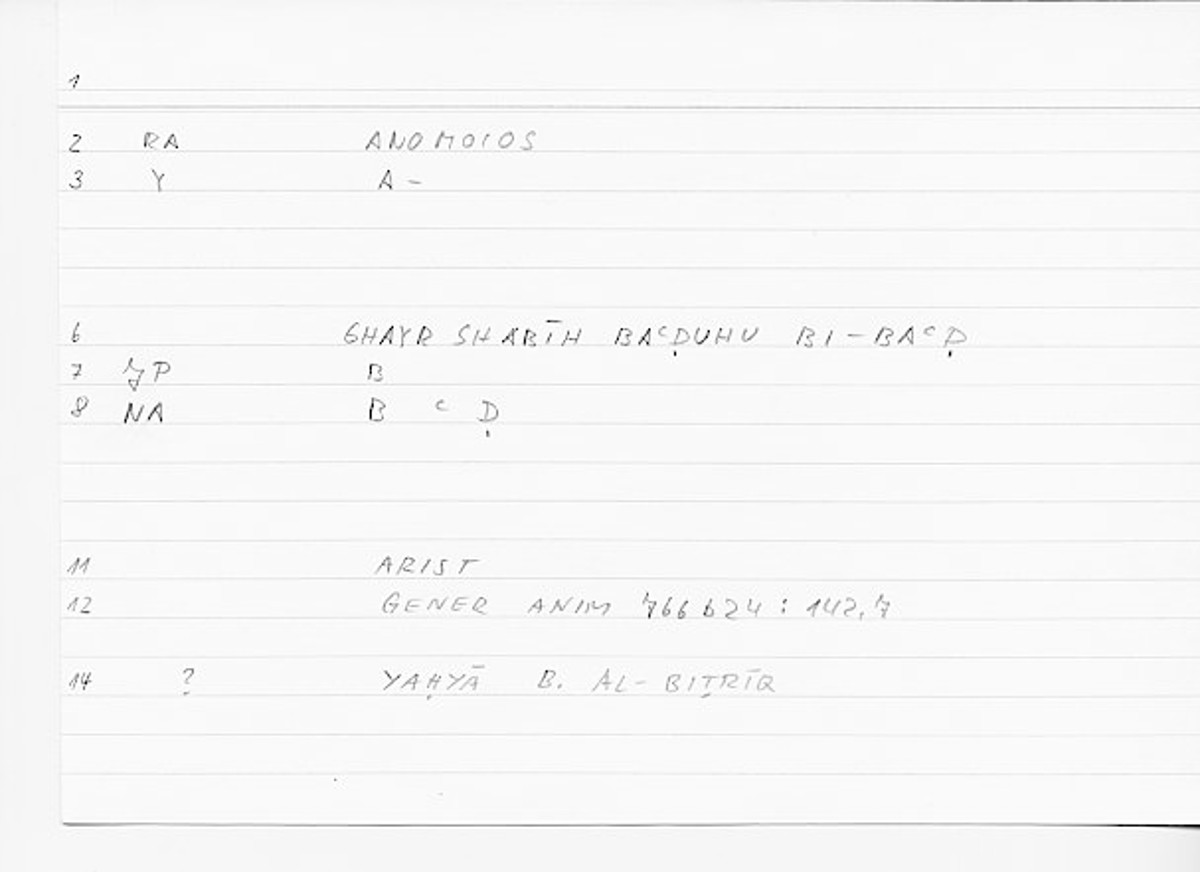 1
2 RA ANOMOIOS
3 Y A-
6 GHAYR SHABĪH BAᶜḌUHU BI-BAᶜḌ
7 JP B
8 NA B ᶜ Ḍ
11 ARIST
12 GENER ANIM 766b24 : 142,7
14 ? YAḤYĀ B. AL-BIṬRĪQ